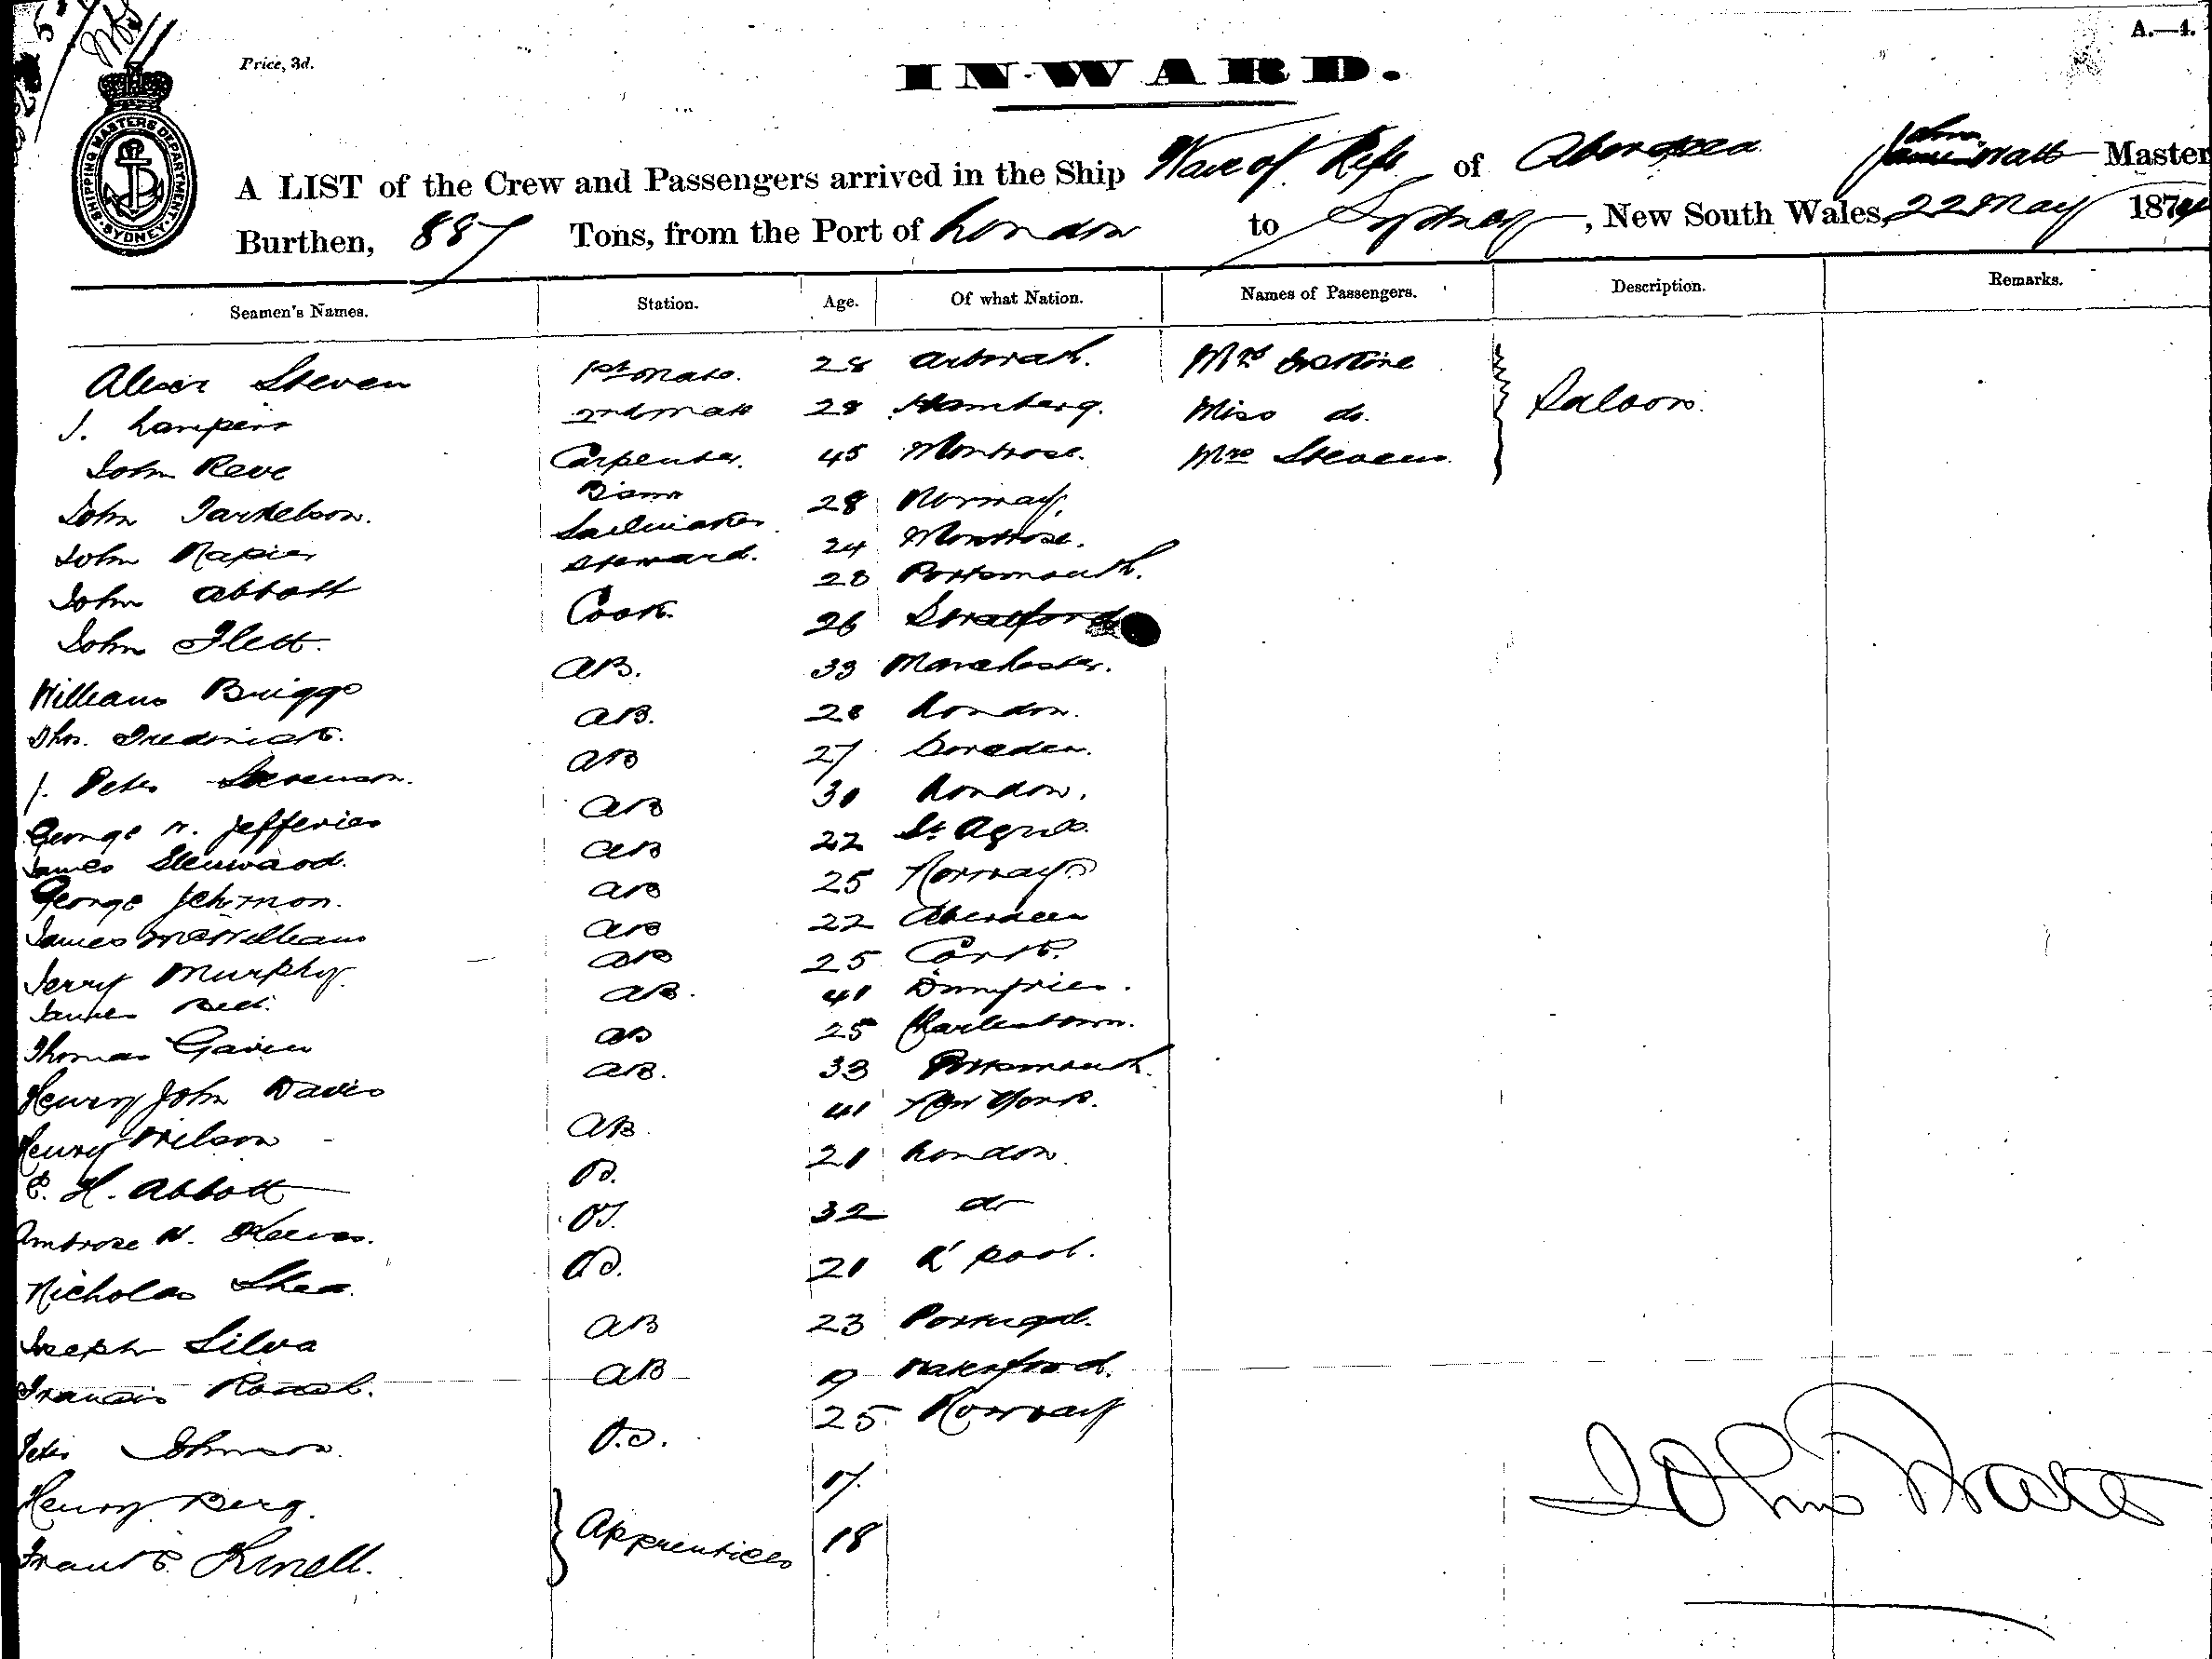 Price, 3d.
A.—4.
INWARD.
SHIPPING MASTERS DEPARTMENT
SYDNEY
A LIST of the Crew and Passengers arrived in the Ship Wave of Life of Aberdeen John Watt Master
Burthen, 887 Tons, from the Port of London to Sydney, New South Wales, 22 May 1874
Seamen's Names. Station. Age. Of what Nation. Names of Passengers. Description. Remarks.
Alexr Steven 1st Mate. 28 Arbroath. Mrs Erskine Saloon.
J. 2nd Mate 28 Hamberg. Miss do.
John Reve Carpenter. 45 Montrose. Mrs Stevens
John Tarkelson. 28 Norway.
John Napier Sailmaker 24 Montrose.
John Abbott Steward. 28 Portsmouth.
John Flett. Cook. 26 Stratford
William Briggs AB. 33 Manchester.
Thos. Frederick. AB. 28 London.
J. Peter AB 27
George W. Jefferies AB 30 London.
James AB 22 St Agnes.
George Johnson. AB 25 Norway
James McWilliams AB 22 Aberdeen
Jerry Murphy. AB 25 Cork.
James Bell. AB. 41 Dumfries.
Thomas Gavin AB 25 Charlestown.
Henry John Davis AB. 33 Portsmouth.
Henry Wilson AB 41 New York.
E. H. Abbott O. 21 London
Ambrose W. OS. 32 do
Nicholas Shea. OS. 21 L'pool.
Joseph Silva AB 23 Portugal.
Francis AB 19 Waterford.
Peter Johnson. O.S. 25 Norway
Henry Berg. Apprentices 17.
Frank E. 18
John Watt